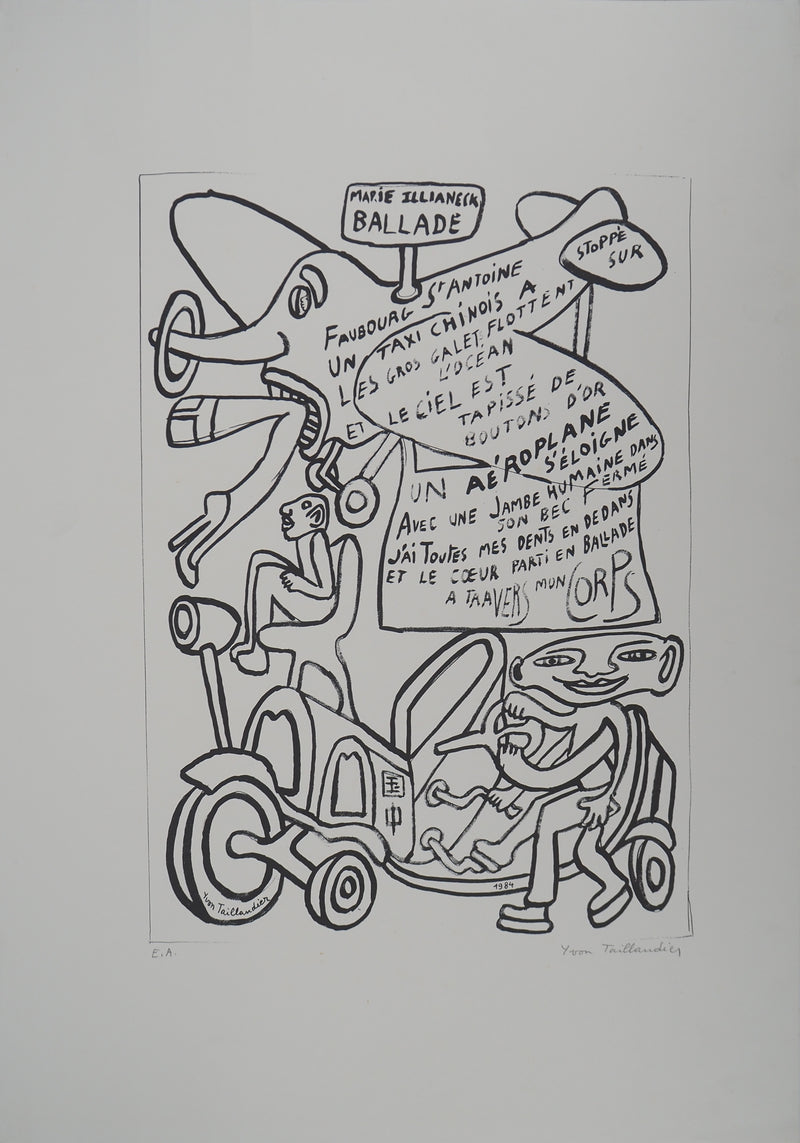 MARIE ILLIANECK
BALLADE
STOPPÉ
SUR
FAUBOURG ST ANTOINE
UN TAXI CHINOIS A
LES GROS GALETS FLOTTENT
L'OCÉAN
ET LE CIEL EST
TAPISSÉ DE
BOUTONS D'OR
UN AÉROPLANE
S'ÉLOIGNE
AVEC UNE JAMBE HUMAINE DANS
SON BEC FERMÉ
J'AI TOUTES MES DENTS EN DEDANS
ET LE CŒUR PARTI EN BALLADE
A TRAVERS MON CORPS
国
中
1984
Yvon Taillandier
E.A.
Yvon Taillandier